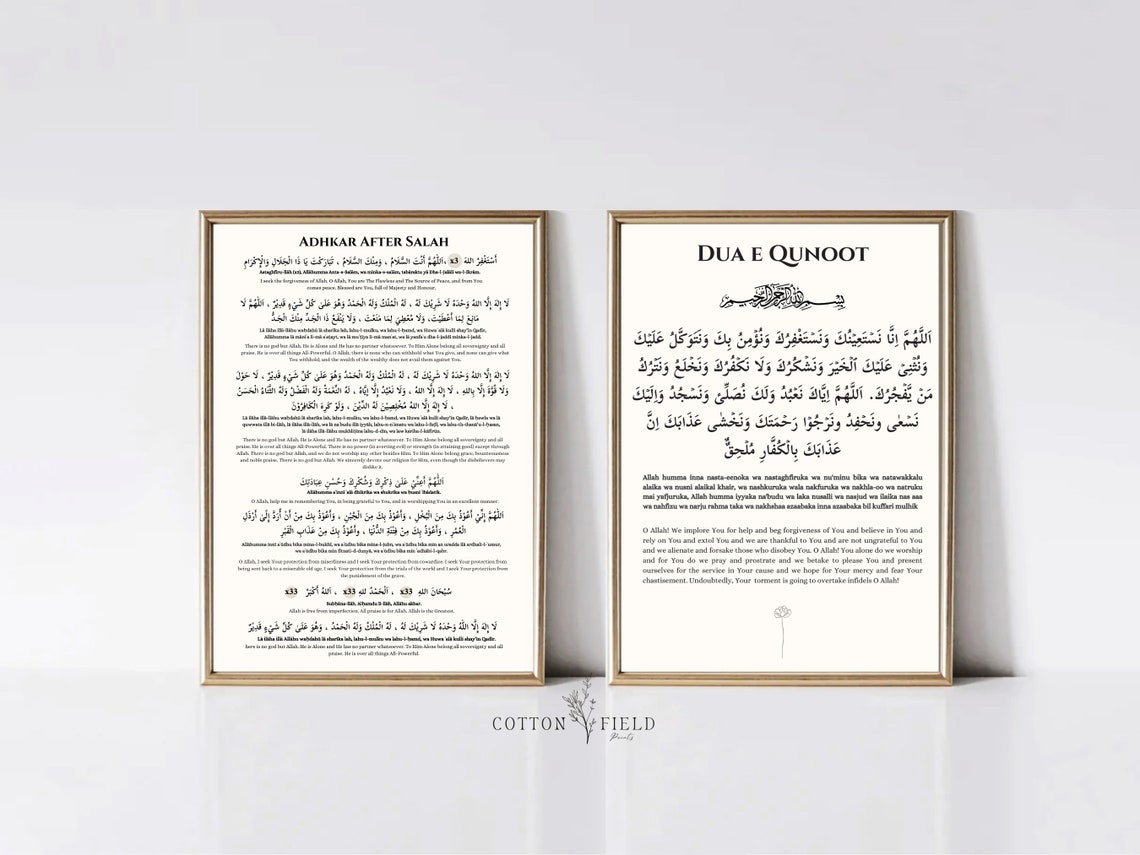 ADHKAR AFTER SALAH
أَسْتَغْفِرُ اللهَ x3 ،اَللّٰهُمَّ أَنْتَ السَّلَامُ ، وَمِنْكَ السَّلَامُ ، تَبَارَكْتَ يَا ذَا الْجَلَالِ وَالْإِكْرَامِ
Astaghfiru-llāh (x3), Allāhumma Anta-s-Salām, wa minka-s-salām, tabārakta yā Dha-l-Jalāli wa-l-Ikrām.
I seek the forgiveness of Allah. O Allah, You are The Flawless and The Source of Peace, and from You
comes peace. Blessed are You, full of Majesty and Honour.
لَا إِلٰهَ إِلَّا اللهُ وَحْدَهُ لَا شَرِيْكَ لَهُ ، لَهُ الْمُلْكُ وَلَهُ الْحَمْدُ وَهُوَ عَلىٰ كُلِّ شَيْءٍ قَدِيْرٌ ، اَللّٰهُمَّ لَا
مَانِعَ لِمَا أَعْطَيْتَ، وَلَا مُعْطِيَ لِمَا مَنَعْتَ ، وَلَا يَنْفَعُ ذَا الْجَدِّ مِنْكَ الْجَدُّ
Lā ilāha illā-llāhu waḥdahū lā sharīka lah, lahu-l-mulku, wa lahu-l-ḥamd, wa Huwa ʿalā kulli shay'in Qadīr.
Allāhumma lā māniʿa li-mā aʿṭayt, wa lā muʿṭiya li-mā manaʿt, wa lā yanfaʿu dha-l-jaddi minka-l-jadd.
There is no god but Allah. He is Alone and He has no partner whatsoever. To Him Alone belong all sovereignty and all
praise. He is over all things All-Powerful. O Allah, there is none who can withhold what You give, and none can give what
You withhold; and the wealth of the wealthy does not avail them against You.
لَا إِلٰهَ إِلَّا اللهُ وَحْدَهُ لَا شَرِيْكَ لَهُ ، لَهُ الْمُلْكُ وَلَهُ الْحَمْدُ وَهُوَ عَلىٰ كُلِّ شَيْءٍ قَدِيْرٌ ، لَا حَوْلَ
وَلَا قُوَّةَ إِلَّا بِاللهِ ، لَا إِلٰهَ إِلَّا اللهُ ، وَلَا نَعْبُدُ إِلَّا إِيَّاهُ ، لَهُ النِّعْمَةُ وَلَهُ الْفَضْلُ وَلَهُ الثَّنَاءُ الْحَسَنُ
، لَا إِلٰهَ إِلَّا اللهُ مُخْلِصِيْنَ لَهُ الدِّيْنَ ، وَلَوْ كَرِهَ الْكَافِرُوْنَ
Lā ilāha illā-llāhu waḥdahū lā sharīka lah, lahu-l-mulku, wa lahu-l-ḥamd, wa Huwa ʿalā kulli shay'in Qadīr, lā ḥawla wa lā
quwwata illā bi-llāh, lā ilāha illā-llāh, wa lā naʿbudu illā iyyāh, lahu-n-niʿmatu wa lahu-l-faḍl, wa lahu-th-thanā'u-l-ḥasan,
lā ilāha illā-llāhu mukhliṣīna lahu-d-dīn, wa law kariha-l-kāfirūn.
There is no god but Allah. He is Alone and He has no partner whatsoever. To Him Alone belong all sovereignty and all
praise. He is over all things All-Powerful. There is no power (in averting evil) or strength (in attaining good) except through
Allah. There is no god but Allah, and we do not worship any other besides Him. To Him Alone belong grace, bounteousness
and noble praise. There is no god but Allah. We sincerely devote our religion for Him, even though the disbelievers may
dislike it.
اَللّٰهُمَّ أَعِنِّيْ عَلىٰ ذِكْرِكَ وَشُكْرِكَ وَحُسْنِ عِبَادَتِكَ
Allāhumma aʿinnī ʿalā dhikrika wa shukrika wa ḥusni ʿibādatik.
O Allah, help me in remembering You, in being grateful to You, and in worshipping You in an excellent manner.
اَللّٰهُمَّ إِنِّيْ أَعُوْذُ بِكَ مِنَ الْبُخْلِ ، وَأَعُوْذُ بِكَ مِنَ الْجُبْنِ ، وَأَعُوْذُ بِكَ مِنْ أَنْ أُرَدَّ إِلىٰ أَرْذَلِ
الْعُمُرِ ، وَأَعُوْذُ بِكَ مِنْ فِتْنَةِ الدُّنْيَا ، وَأَعُوْذُ بِكَ مِنْ عَذَابِ الْقَبْرِ
Allāhumma innī aʿūdhu bika mina-l-bukhl, wa aʿūdhu bika mina-l-jubn, wa aʿūdhu bika min an uradda ilā ardhali-l-ʿumur,
wa aʿūdhu bika min fitnati-d-dunyā, wa aʿūdhu bika min ʿadhābi-l-qabr.
O Allah, I seek Your protection from miserliness and I seek Your protection from cowardice. I seek Your protection from
being sent back to a miserable old age. I seek Your protection from the trials of the world and I seek Your protection from
the punishment of the grave.
سُبْحَانَ اللهِ x33 ، اَلْحَمْدُ للهِ x33 ، اَللهُ أَكْبَرُ x33
Subḥāna-llāh. Alḥamdu li-llāh, Allāhu akbar.
Allah is free from imperfection. All praise is for Allah. Allah is the Greatest.
لَا إِلٰهَ إِلَّا اللّٰهُ وَحْدَهُ لَا شَرِيْكَ لَهُ ، لَهُ الْمُلْكُ وَلَهُ الْحَمْدُ ، وَهُوَ عَلىٰ كُلِّ شَيْءٍ قَدِيْرٌ
Lā ilāha illā Allāhu waḥdahū lā sharīka lah, lahu-l-mulku wa lahu-l-ḥamd, wa Huwa ʿalā kulli shay'in Qadīr.
here is no god but Allah. He is Alone and He has no partner whatsoever. To Him Alone belong all sovereignty and all
praise. He is over all things All-Powerful.
DUA E QUNOOT
بسم الله الرحمن الرحيم
اَللّٰهُمَّ اِنَّا نَسْتَعِيْنُكَ وَنَسْتَغْفِرُكَ وَنُؤْمِنُ بِكَ وَنَتَوَكَّلُ عَلَيْكَ
وَنُثْنِىْ عَلَيْكَ الْخَيْرَ وَنَشْكُرُكَ وَلَا نَكْفُرُكَ وَنَخْلَعُ وَنَتْرُكُ
مَنْ يَّفْجُرُكَ. اَللّٰهُمَّ اِيَّاكَ نَعْبُدُ وَلَكَ نُصَلِّىْ وَنَسْجُدُ وَاِلَيْكَ
نَسْعٰى وَنَحْفِدُ وَنَرْجُوْا رَحْمَتَكَ وَنَخْشٰى عَذَابَكَ اِنَّ
عَذَابَكَ بِالْكُفَّارِ مُلْحِقٌ
Allah humma inna nasta-eenoka wa nastaghfiruka wa nu'minu bika wa natawakkalu
alaika wa nusni alaikal khair, wa nashkuruka wala nakfuruka wa nakhla-oo wa natruku
mai yafjuruka, Allah humma iyyaka na'budu wa laka nusalli wa nasjud wa ilaika nas aaa
wa nahfizu wa narju rahma taka wa nakhshaa azaabaka inna azaabaka bil kuffari mulhik
O Allah! We implore You for help and beg forgiveness of You and believe in You and
rely on You and extol You and we are thankful to You and are not ungrateful to You
and we alienate and forsake those who disobey You. O Allah! You alone do we worship
and for You do we pray and prostrate and we betake to please You and present
ourselves for the service in Your cause and we hope for Your mercy and fear Your
chastisement. Undoubtedly, Your torment is going to overtake infidels O Allah!
COTTON FIELD
Prints